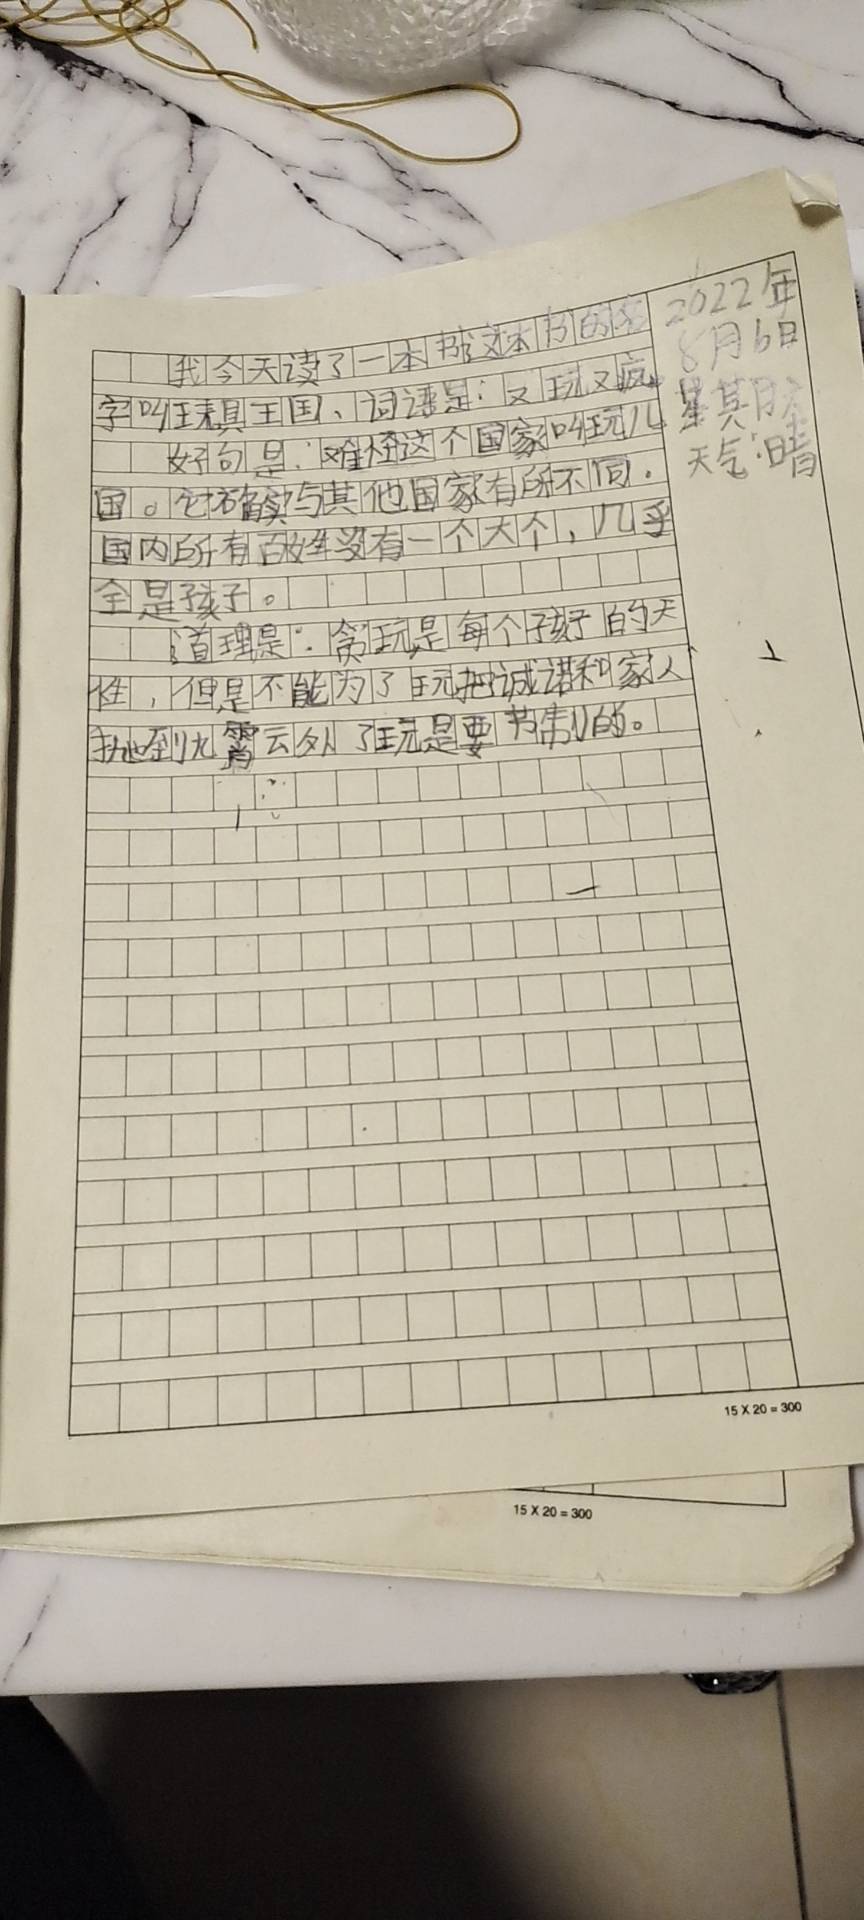 我今天读了一本书这本书的名
字叫玩具王国、词语是:又玩又疯。
好句是:难怪这个国家叫玩儿
国。它确实与其他国家有所不同.
国内所有百姓没有一个大个,几乎
全是孩子。
道理是:贪玩是每个孩子的天
性,但是不能为了玩把诚诺和家人
抛到九霄云外了玩是要节制的。
2022年
8月6日
星其六
天气:晴
15 X 20 = 300
15 X 20 = 300